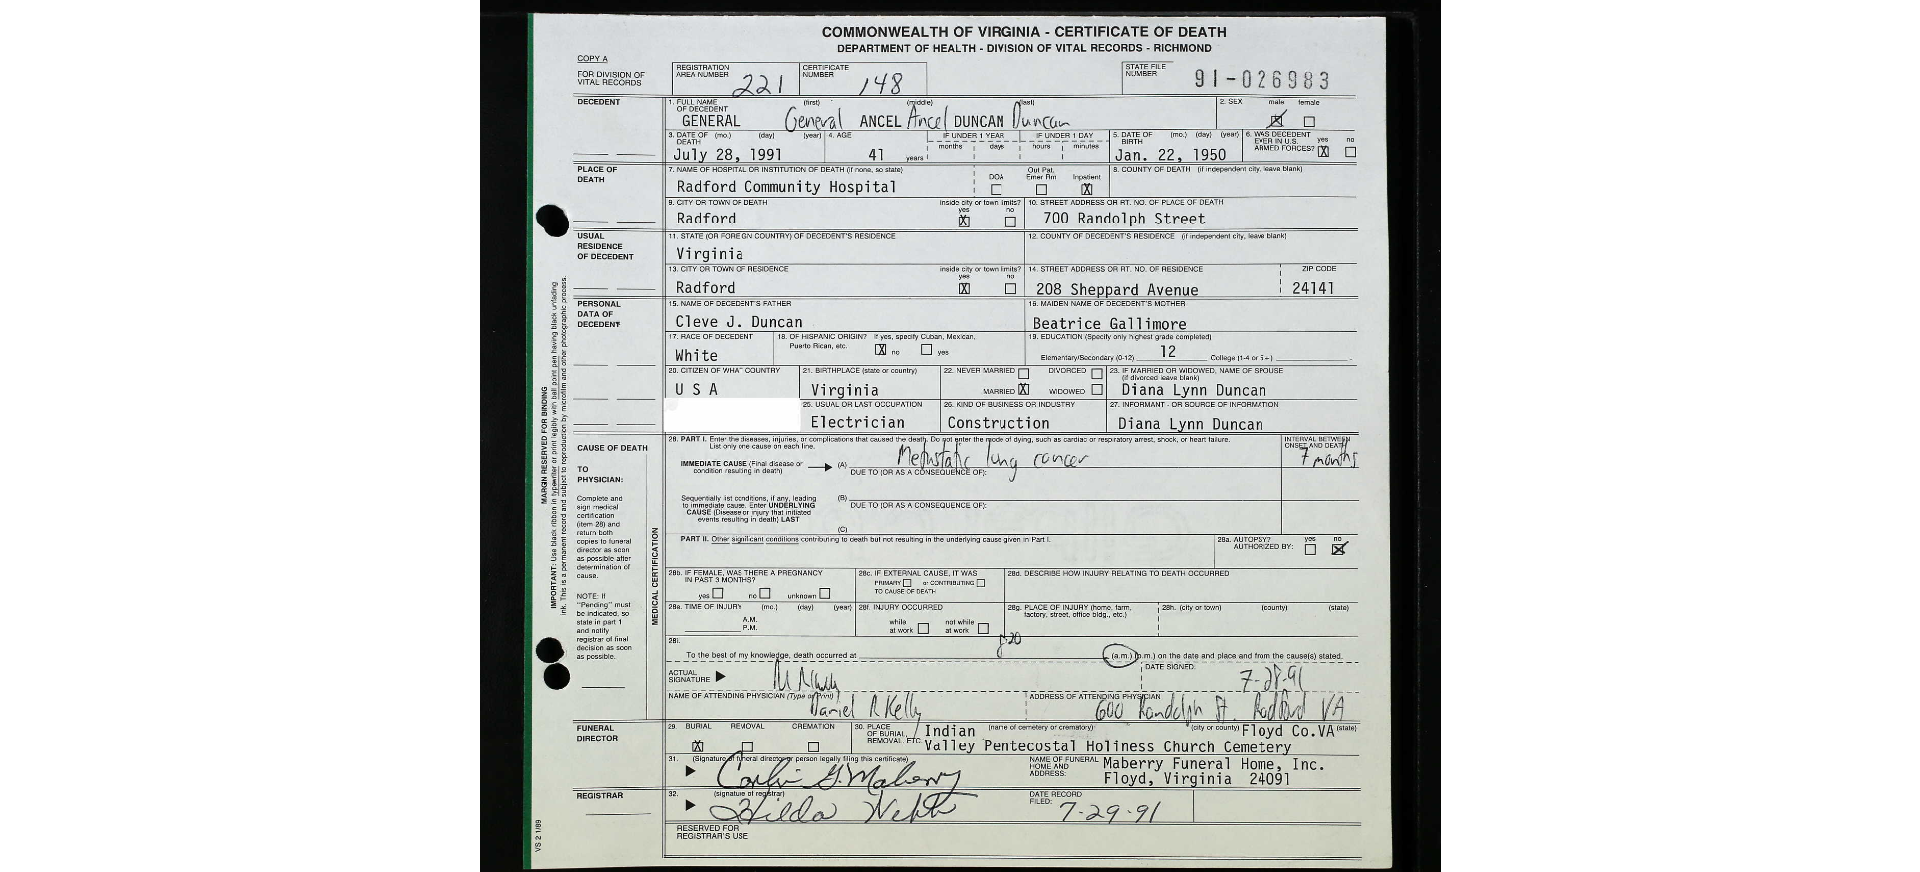 COMMONWEALTH OF VIRGINIA - CERTIFICATE OF DEATH
DEPARTMENT OF HEALTH - DIVISION OF VITAL RECORDS - RICHMOND
COPY A
FOR DIVISION OF VITAL RECORDS
REGISTRATION AREA NUMBER 221
CERTIFICATE NUMBER 148
STATE FILE NUMBER 91-026983
DECEDENT
1. FULL NAME OF DECEDENT (first) (middle) (last)
GENERAL General ANCEL Ancel DUNCAN Duncan
2. SEX male female
3. DATE OF DEATH (mo.) (day) (year)
July 28, 1991
4. AGE
41 years
IF UNDER 1 YEAR months days
IF UNDER 1 DAY hours minutes
5. DATE OF BIRTH (mo.) (day) (year)
Jan. 22, 1950
6. WAS DECEDENT EVER IN U.S. ARMED FORCES? yes X no
PLACE OF DEATH
7. NAME OF HOSPITAL OR INSTITUTION OF DEATH (if none, so state)
Radford Community Hospital
DOA Out Pat. Emer Rm Inpatient X
8. COUNTY OF DEATH (if independent city, leave blank)
9. CITY OR TOWN OF DEATH
Radford
inside city or town limits? yes X no
10. STREET ADDRESS OR RT. NO. OF PLACE OF DEATH
700 Randolph Street
USUAL RESIDENCE OF DECEDENT
11. STATE (OR FOREIGN COUNTRY) OF DECEDENT'S RESIDENCE
Virginia
12. COUNTY OF DECEDENT'S RESIDENCE (if independent city, leave blank)
13. CITY OR TOWN OF RESIDENCE
Radford
inside city or town limits? yes X no
14. STREET ADDRESS OR RT. NO. OF RESIDENCE
208 Sheppard Avenue
ZIP CODE
24141
PERSONAL DATA OF DECEDENT
15. NAME OF DECEDENT'S FATHER
Cleve J. Duncan
16. MAIDEN NAME OF DECEDENT'S MOTHER
Beatrice Gallimore
17. RACE OF DECEDENT
White
18. OF HISPANIC ORIGIN? If yes, specify Cuban, Mexican, Puerto Rican, etc.
X no yes
19. EDUCATION (Specify only highest grade completed)
Elementary/Secondary (0-12) 12 College (1-4 or 5+)
20. CITIZEN OF WHAT COUNTRY
U S A
21. BIRTHPLACE (state or country)
Virginia
22. NEVER MARRIED DIVORCED
MARRIED X WIDOWED
23. IF MARRIED OR WIDOWED, NAME OF SPOUSE (if divorced leave blank)
Diana Lynn Duncan
25. USUAL OR LAST OCCUPATION
Electrician
26. KIND OF BUSINESS OR INDUSTRY
Construction
27. INFORMANT - OR SOURCE OF INFORMATION
Diana Lynn Duncan
CAUSE OF DEATH
TO PHYSICIAN:
Complete and sign medical certification (item 28) and return both copies to funeral director as soon as possible after determination of cause.
NOTE: If "Pending" must be indicated, so state in part 1 and notify registrar of final decision as soon as possible.
MEDICAL CERTIFICATION
28. PART I. Enter the diseases, injuries, or complications that caused the death. Do not enter the mode of dying, such as cardiac or respiratory arrest, shock, or heart failure.
List only one cause on each line.
INTERVAL BETWEEN ONSET AND DEATH
IMMEDIATE CAUSE (Final disease or condition resulting in death) (A) Metastatic lung cancer 7 months
DUE TO (OR AS A CONSEQUENCE OF):
Sequentially list conditions, if any, leading to immediate cause. Enter UNDERLYING CAUSE (Disease or injury that initiated events resulting in death) LAST
(B)
DUE TO (OR AS A CONSEQUENCE OF):
(C)
PART II. Other significant conditions contributing to death but not resulting in the underlying cause given in Part I.
28a. AUTOPSY? AUTHORIZED BY: yes no
28b. IF FEMALE, WAS THERE A PREGNANCY IN PAST 3 MONTHS?
yes no unknown
28c. IF EXTERNAL CAUSE, IT WAS
PRIMARY or CONTRIBUTING
TO CAUSE OF DEATH
28d. DESCRIBE HOW INJURY RELATING TO DEATH OCCURRED
28e. TIME OF INJURY (mo.) (day) (year)
A.M.
P.M.
28f. INJURY OCCURRED
while at work not while at work
28g. PLACE OF INJURY (home, farm, factory, street, office bldg., etc.)
28h. (city or town) (county) (state)
28i.
To the best of my knowledge, death occurred at 8:20 (a.m.) (p.m.) on the date and place and from the cause(s) stated.
ACTUAL SIGNATURE
DATE SIGNED:
7-28-91
NAME OF ATTENDING PHYSICIAN (Type or Print)
Daniel R Kelly
ADDRESS OF ATTENDING PHYSICIAN
600 Randolph St. Radford VA
FUNERAL DIRECTOR
29. BURIAL X REMOVAL CREMATION
30. PLACE OF BURIAL, REMOVAL, ETC. (name of cemetery or crematory) (city or county) (state)
Indian Floyd Co.VA
Valley Pentecostal Holiness Church Cemetery
31. (Signature of funeral director or person legally filing this certificate)
G. Maberry
NAME OF FUNERAL HOME AND ADDRESS:
Maberry Funeral Home, Inc.
Floyd, Virginia 24091
REGISTRAR
32. (signature of registrar)
Hilda Webb
DATE RECORD FILED:
7-29-91
RESERVED FOR REGISTRAR'S USE
VS 2 1/89
MARGIN RESERVED FOR BINDING
IMPORTANT: Use black ribbon in typewriter or print legibly with ball point pen having black unfading
ink. This is a permanent record and subject to reproduction by microfilm and other photographic process.